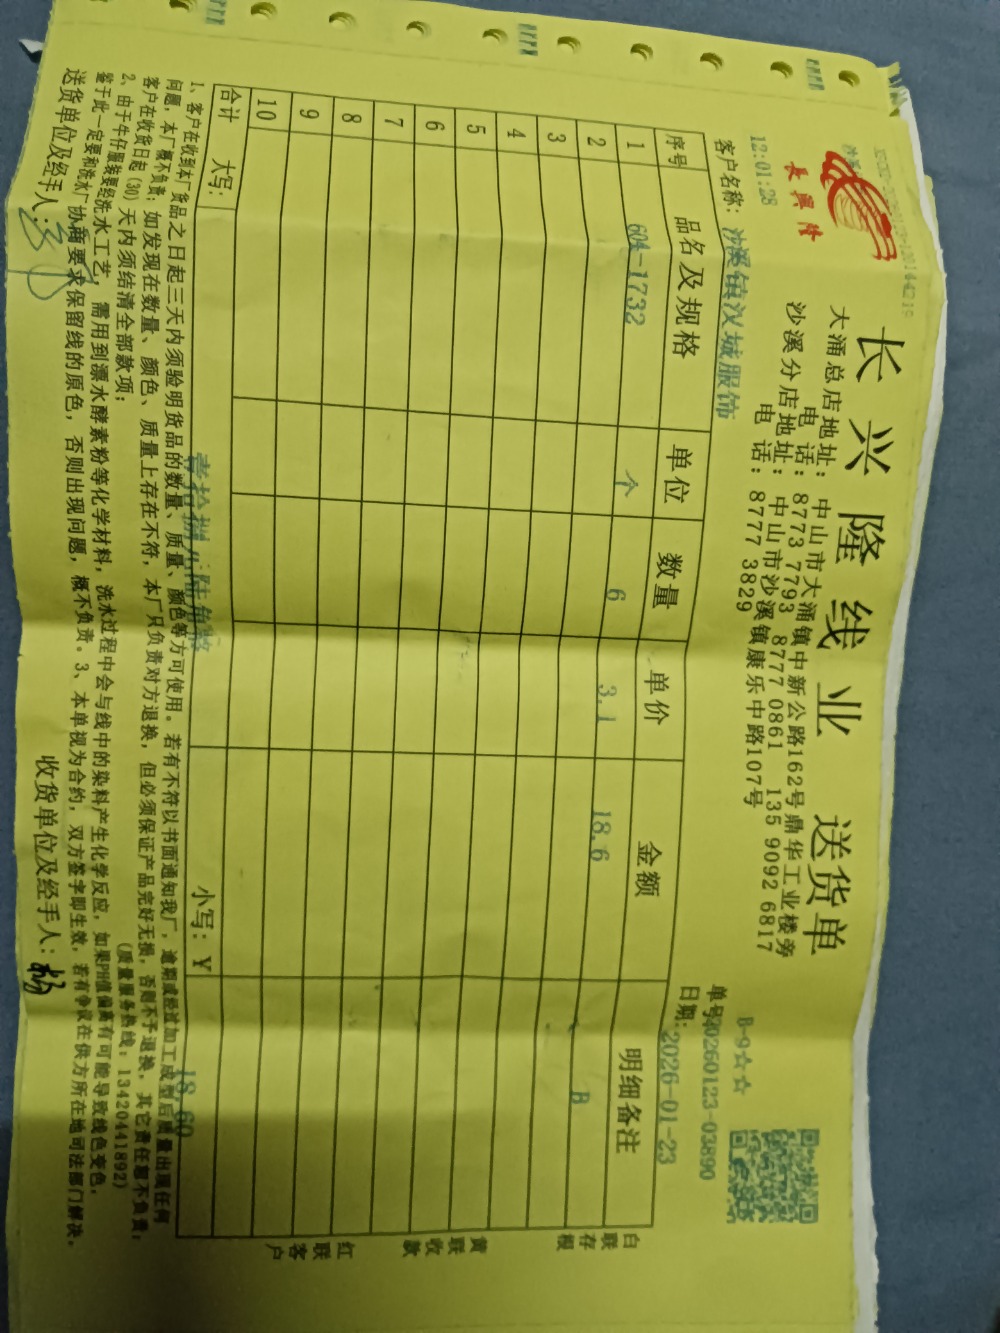 長興隆
长兴隆线业 送货单
大涌总店地址：中山市大涌镇中新公路162号鼎华工业楼旁
电话：8773 7793 8777 0861 135 9092 6817
沙溪分店地址：中山市沙溪镇康乐中路107号
电话：8777 3829
B-9☆☆
12:01:28
单号20260123-03890
客户名称：沙溪镇汉城服饰
日期：2026-01-23
序号 品名及规格 单位 数量 单价 金额 明细备注
1 604-1732 个 6 3.1 18.6 B
2
3
4
5
6
7
8
9
10
合计 大写：壹拾捌元陆角整 小写：￥ 18.60
白联存根
黄联收款
红联客户
1、客户在收到本厂货品之日起三天内须验明货品的数量、质量、颜色等方可使用。若有不符以书面通知我厂，逾期或经过加工成型后质量出现任何
问题，本厂概不负责；如发现在数量、颜色、质量上存在不符，本厂只负责对方退换，但必须保证产品完好无损，否则不予退换，其它责任恕不负责，
客户在收货日起（30）天内须结清全部款项； （质量服务热线：13420441892）
2、由于牛仔服装要经洗水工艺，需用到漂水酵素粉等化学材料，洗水过程中会与线中的染料产生化学反应，如果PH值偏高有可能导致线色变色，
鉴于此一定要和洗水厂协商要求保留线的原色，否则出现问题，概不负责。3、本单视为合约，双方签字即生效，若有争议在供方所在地司法部门解决。
送货单位及经手人： 收货单位及经手人：杨